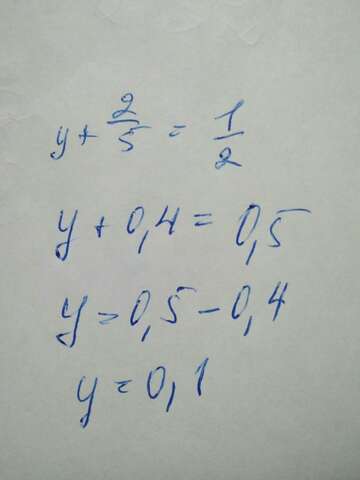 y + 2/5 = 1/2
y + 0,4 = 0,5
y = 0,5 - 0,4
y = 0,1